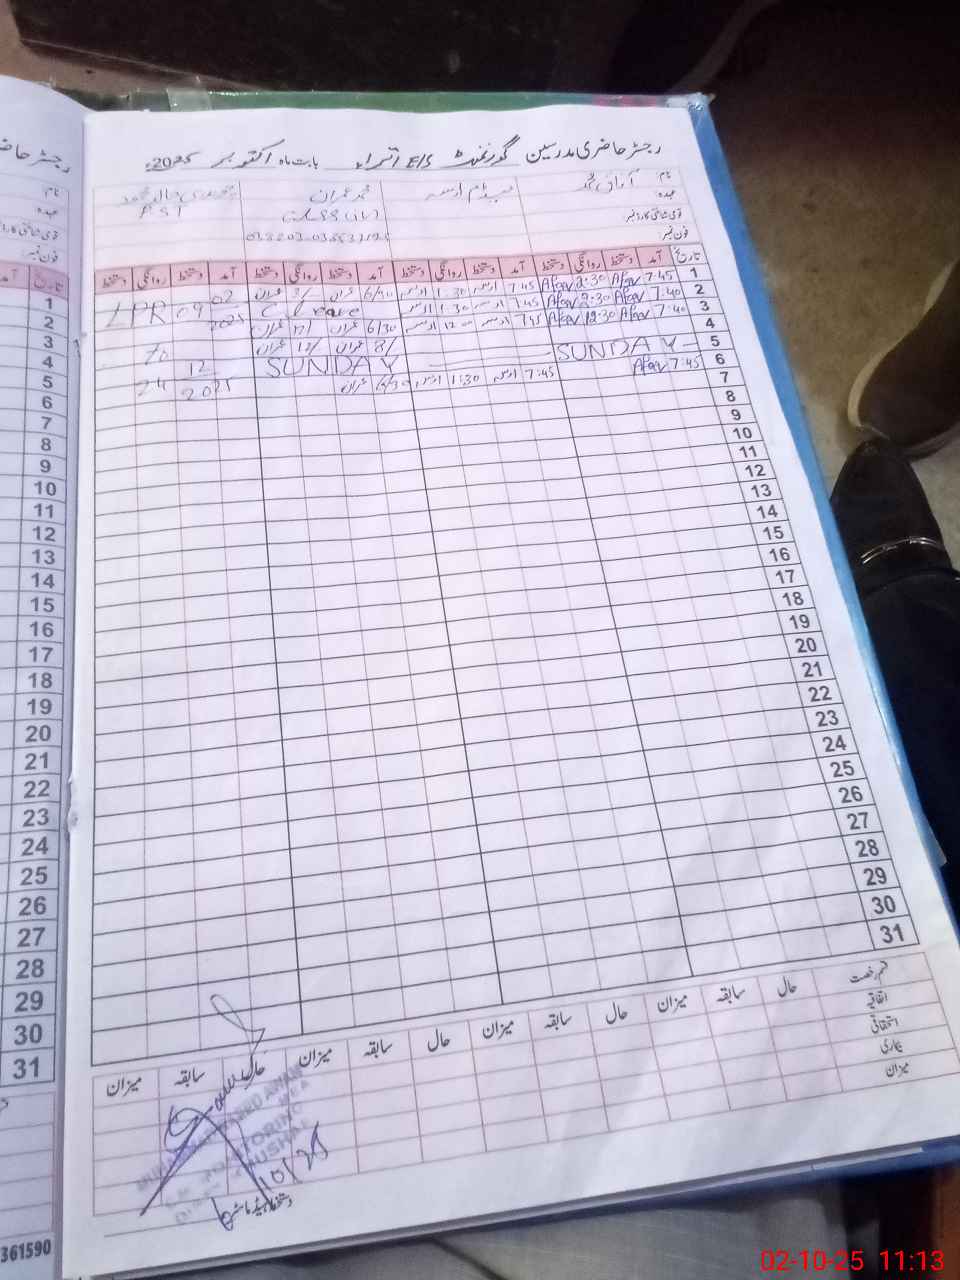 رجسٹر حاضری مدرسین گورنمنٹ E/S بابت ماہ اکتوبر 2025ء
نام آفاق محمد میڈم محمد عمران
عہدہ PST
قومی شناختی کارڈ نمبر:
فون نمبر:
تاریخ آمد دستخط روانگی دستخط آمد دستخط روانگی دستخط آمد دستخط روانگی دستخط آمد دستخط روانگی دستخط
1 7:45 Afaq 2:30 Afaq 7:45 1:30 6/30 عمران عمران LPR 09 02
2 7:40 Afaq 2:30 Afaq 7:45 1:30 C leave 2025
3 7:40 Afaq 12:30 Afaq 7:45 12:00 6/30 عمران 12/ عمران
4 8/ عمران 12/ عمران To
5 SUNDAY SUNDAY 24 12 2025
6 7:45 Afaq 7:45 1:30 6/30 عمران
7
8
9
10
11
12
13
14
15
16
17
18
19
20
21
22
23
24
25
26
27
28
29
30
31
قسم رخصت حال سابقہ میزان حال سابقہ میزان حال سابقہ میزان حال سابقہ میزان
اتفاقیہ
استحقاقی
بیماری
میزان
دستخط ہیڈ ماسٹر
رجسٹر حاضری
نام
عہدہ
قومی شناختی کارڈ
فون نمبر:
تاریخ آمد
1
2
3
4
5
6
7
8
9
10
11
12
13
14
15
16
17
18
19
20
21
22
23
24
25
26
27
28
29
30
31
361590
02-10-25 11:13